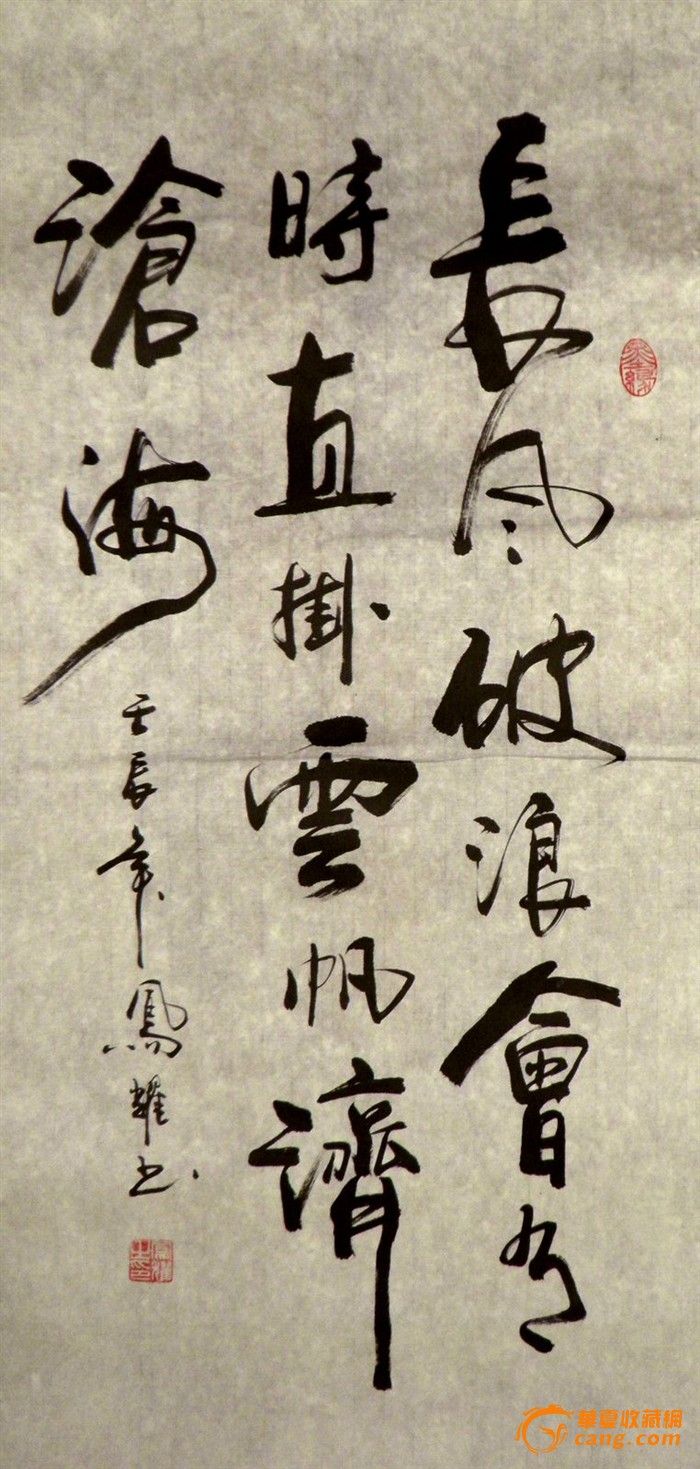 長風破浪會有
時直掛雲帆濟
滄海
壬辰年鳳耀书
華夏收藏網
cang.com